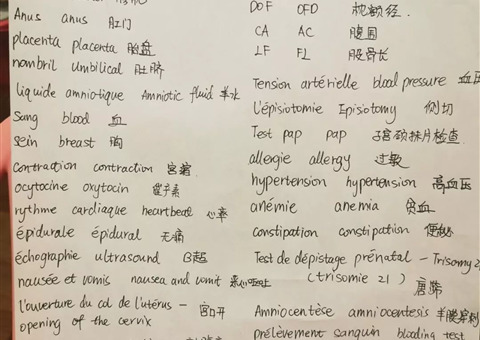 Anus anus 肛门
placenta placenta 胎盘
nombril umbilical 肚脐
liquide amniotique Amniotic fluid 羊水
Sang blood 血
sein breast 胸
contraction contraction 宫缩
ocytocine oxytocin
rythme cardiaque heartbeat 心率
épidurale épidural 无痛
échographie ultrasound B超
nausée et vomis nausea and vomit 恶心呕吐
l'ouverture du col de l'utérus – 宫口开
opening of the cervix
DOF OFD 枕额径.
CA AC 腹围
LF FL 股骨长
Tension artérielle blood pressure 血压
L'épisiotomie Episiotomy 侧切
Test pap pap 子宫颈抹片检查
allergie allergy 过敏
hypertension hypertension 高血压
anémie anemia 贫血
constipation constipation 便秘
Test de dépistage prénatal – Trisomy 2
(trisomie 21) 唐筛
Amniocentèse amniocentesis 羊膜穿刺
prélèvement sanguin blooding test